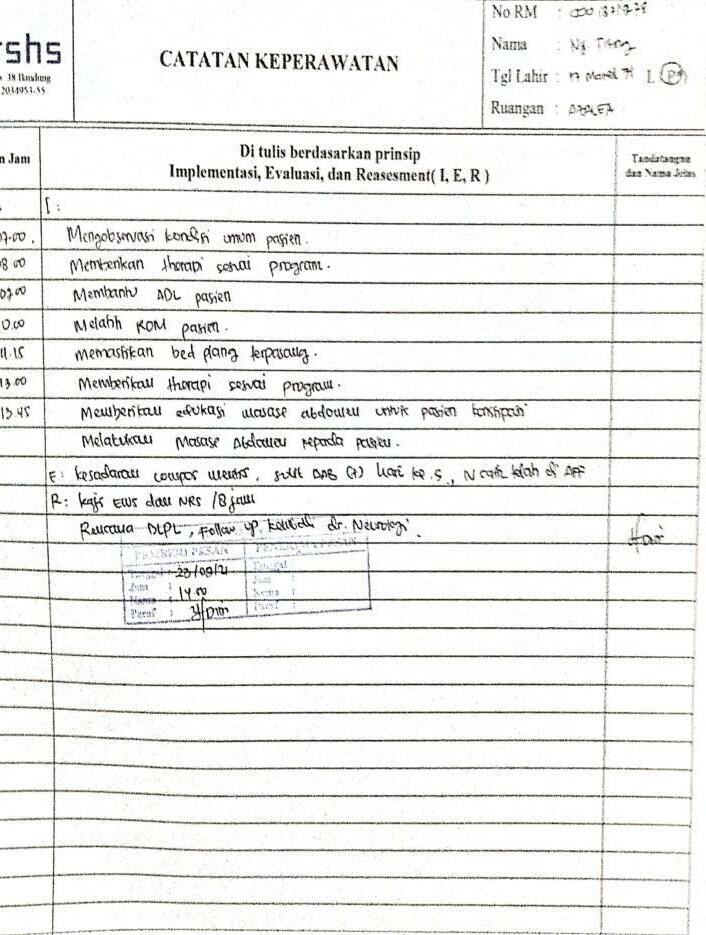 rshs
38 Bandung
2034953-55
CATATAN KEPERAWATAN
No RM :
Nama : Ny
Tgl Lahir : 17 Maret L P
Ruangan : AZALEA
n Jam
Di tulis berdasarkan prinsip
Implementasi, Evaluasi, dan Reasesment( I, E, R )
Tandatangan
dan Nama Jelas
I :
07.00. Mengobservasi kondisi umum pasien.
08.00 Memberikan therapi sesuai program.
09.00 Membantu ADL pasien
0.00 Melatih ROM pasien.
11.15 Memastikan bed plang terpasang.
13.00 Memberikan therapi sesuai program.
13.45 Memberikan edukasi masase abdomen untuk pasien konstipasi
Melakukan Masase Abdomen kepada pasien.
E : kesadaran compos mentis, sulit BAB (+) hari ke.5, N telah di AFF
R : kaji EWS dan NRS /8 jam
Rencana DLPL, Follow up dr. Neurologi.
PEMBERI PESAN
PENERIMA PESAN
Tanggal : 23/09/21
Tanggal :
Jam : 14.00
Jam :
Nama :
Nama :
Paraf :
Paraf :